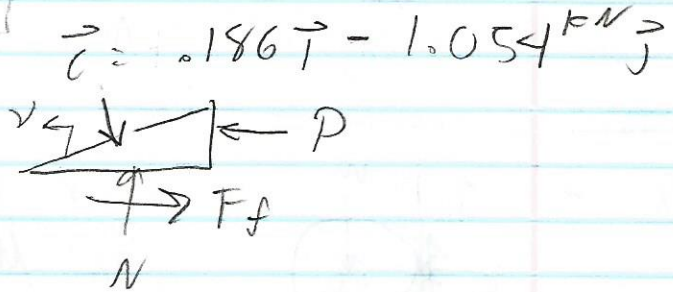 C⃗ = .186 i⃗ - 1.054 kN j⃗
P
Ff
N